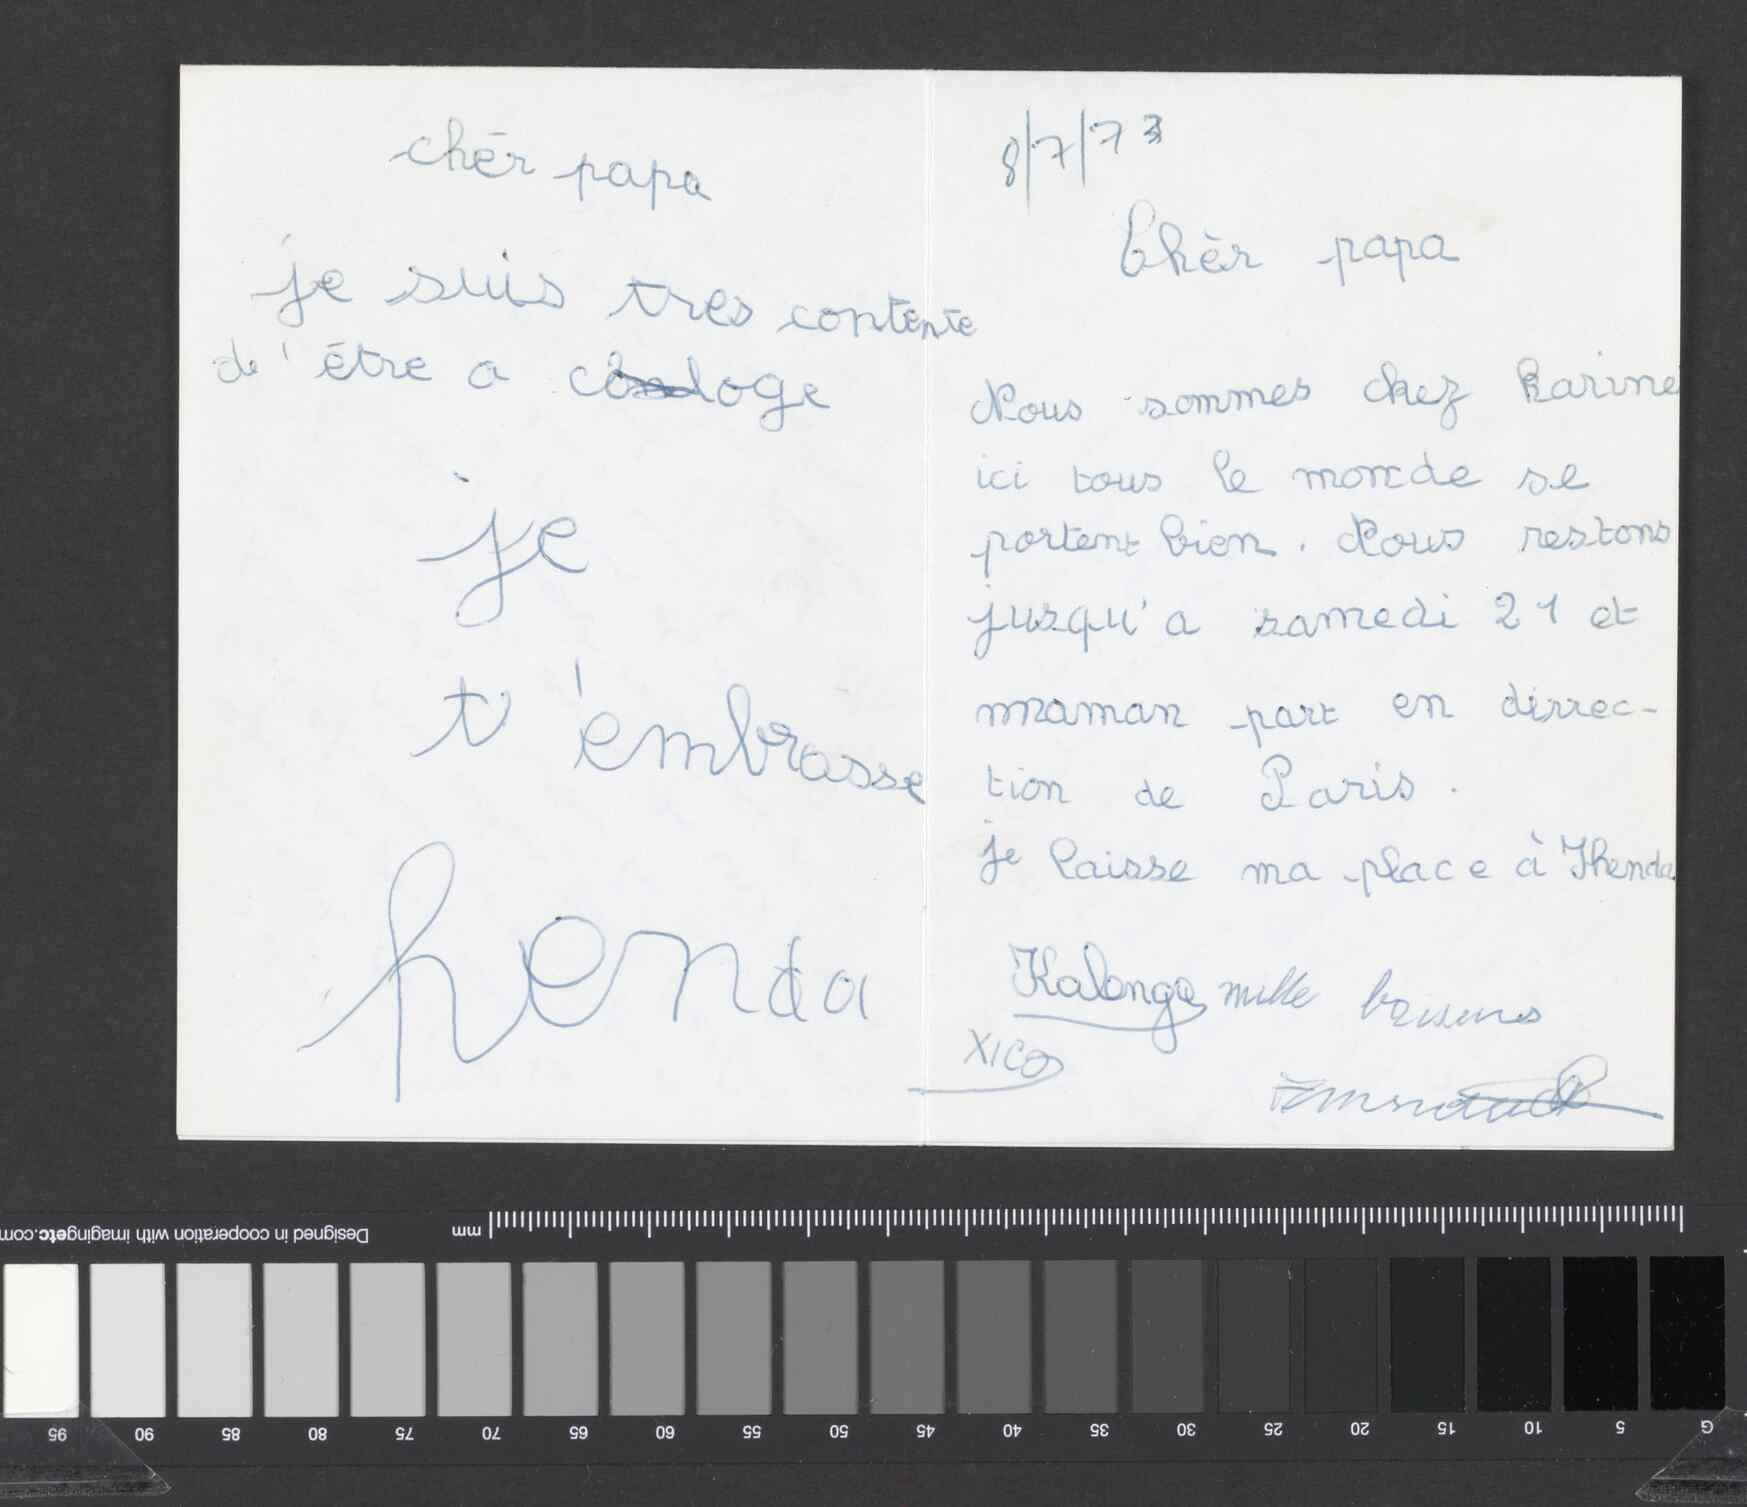 chèr papa
je suis tres contente
de' être a cologe
je
t'embrasse
henda
8/7/73
Chèr papa
Nous sommes chez Karine
ici tous le monde se
portent bien. Nous restons
jusqu'a samedi 21 et
maman part en dirrec-
tion de Paris.
je laisse ma place à Ihenda
Kalonga mille baisers
XICO
mm
Designed in cooperation with imagingetc.com
95 90 85 80 75 70 65 60 55 50 45 40 35 30 25 20 15 10 5 G